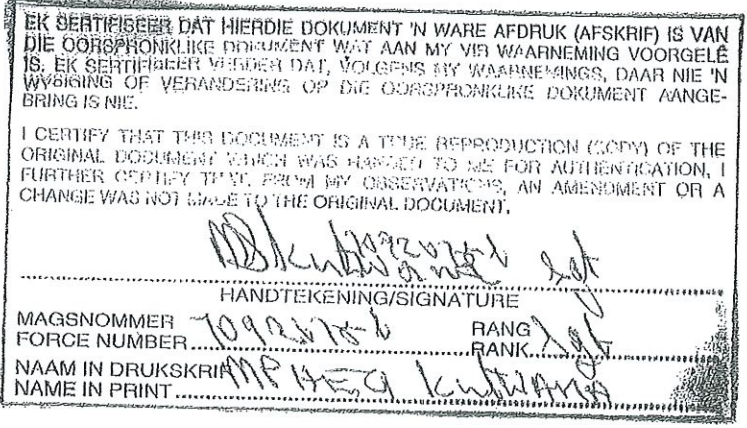 EK SERTIFISEER DAT HIERDIE DOKUMENT 'N WARE AFDRUK (AFSKRIF) IS VAN
DIE OORSPRONKLIKE DOKUMENT WAT AAN MY VIR WAARNEMING VOORGELÊ
IS. EK SERTIFISEER VERDER DAT, VOLGENS MY WAARNEMINGS, DAAR NIE 'N
WYSIGING OF VERANDERING OP DIE OORSPRONKLIKE DOKUMENT AANGE-
BRING IS NIE.
I CERTIFY THAT THIS DOCUMENT IS A TRUE REPRODUCTION (COPY) OF THE
ORIGINAL DOCUMENT WHICH WAS HANDED TO ME FOR AUTHENTICATION, I
FURTHER CERTIFY THAT, FROM MY OBSERVATIONS, AN AMENDMENT OR A
CHANGE WAS NOT MADE TO THE ORIGINAL DOCUMENT.
Sgt
HANDTEKENING/SIGNATURE
MAGSNOMMER
FORCE NUMBER
RANG
RANK Sgt
NAAM IN DRUKSKRIF
NAME IN PRINT